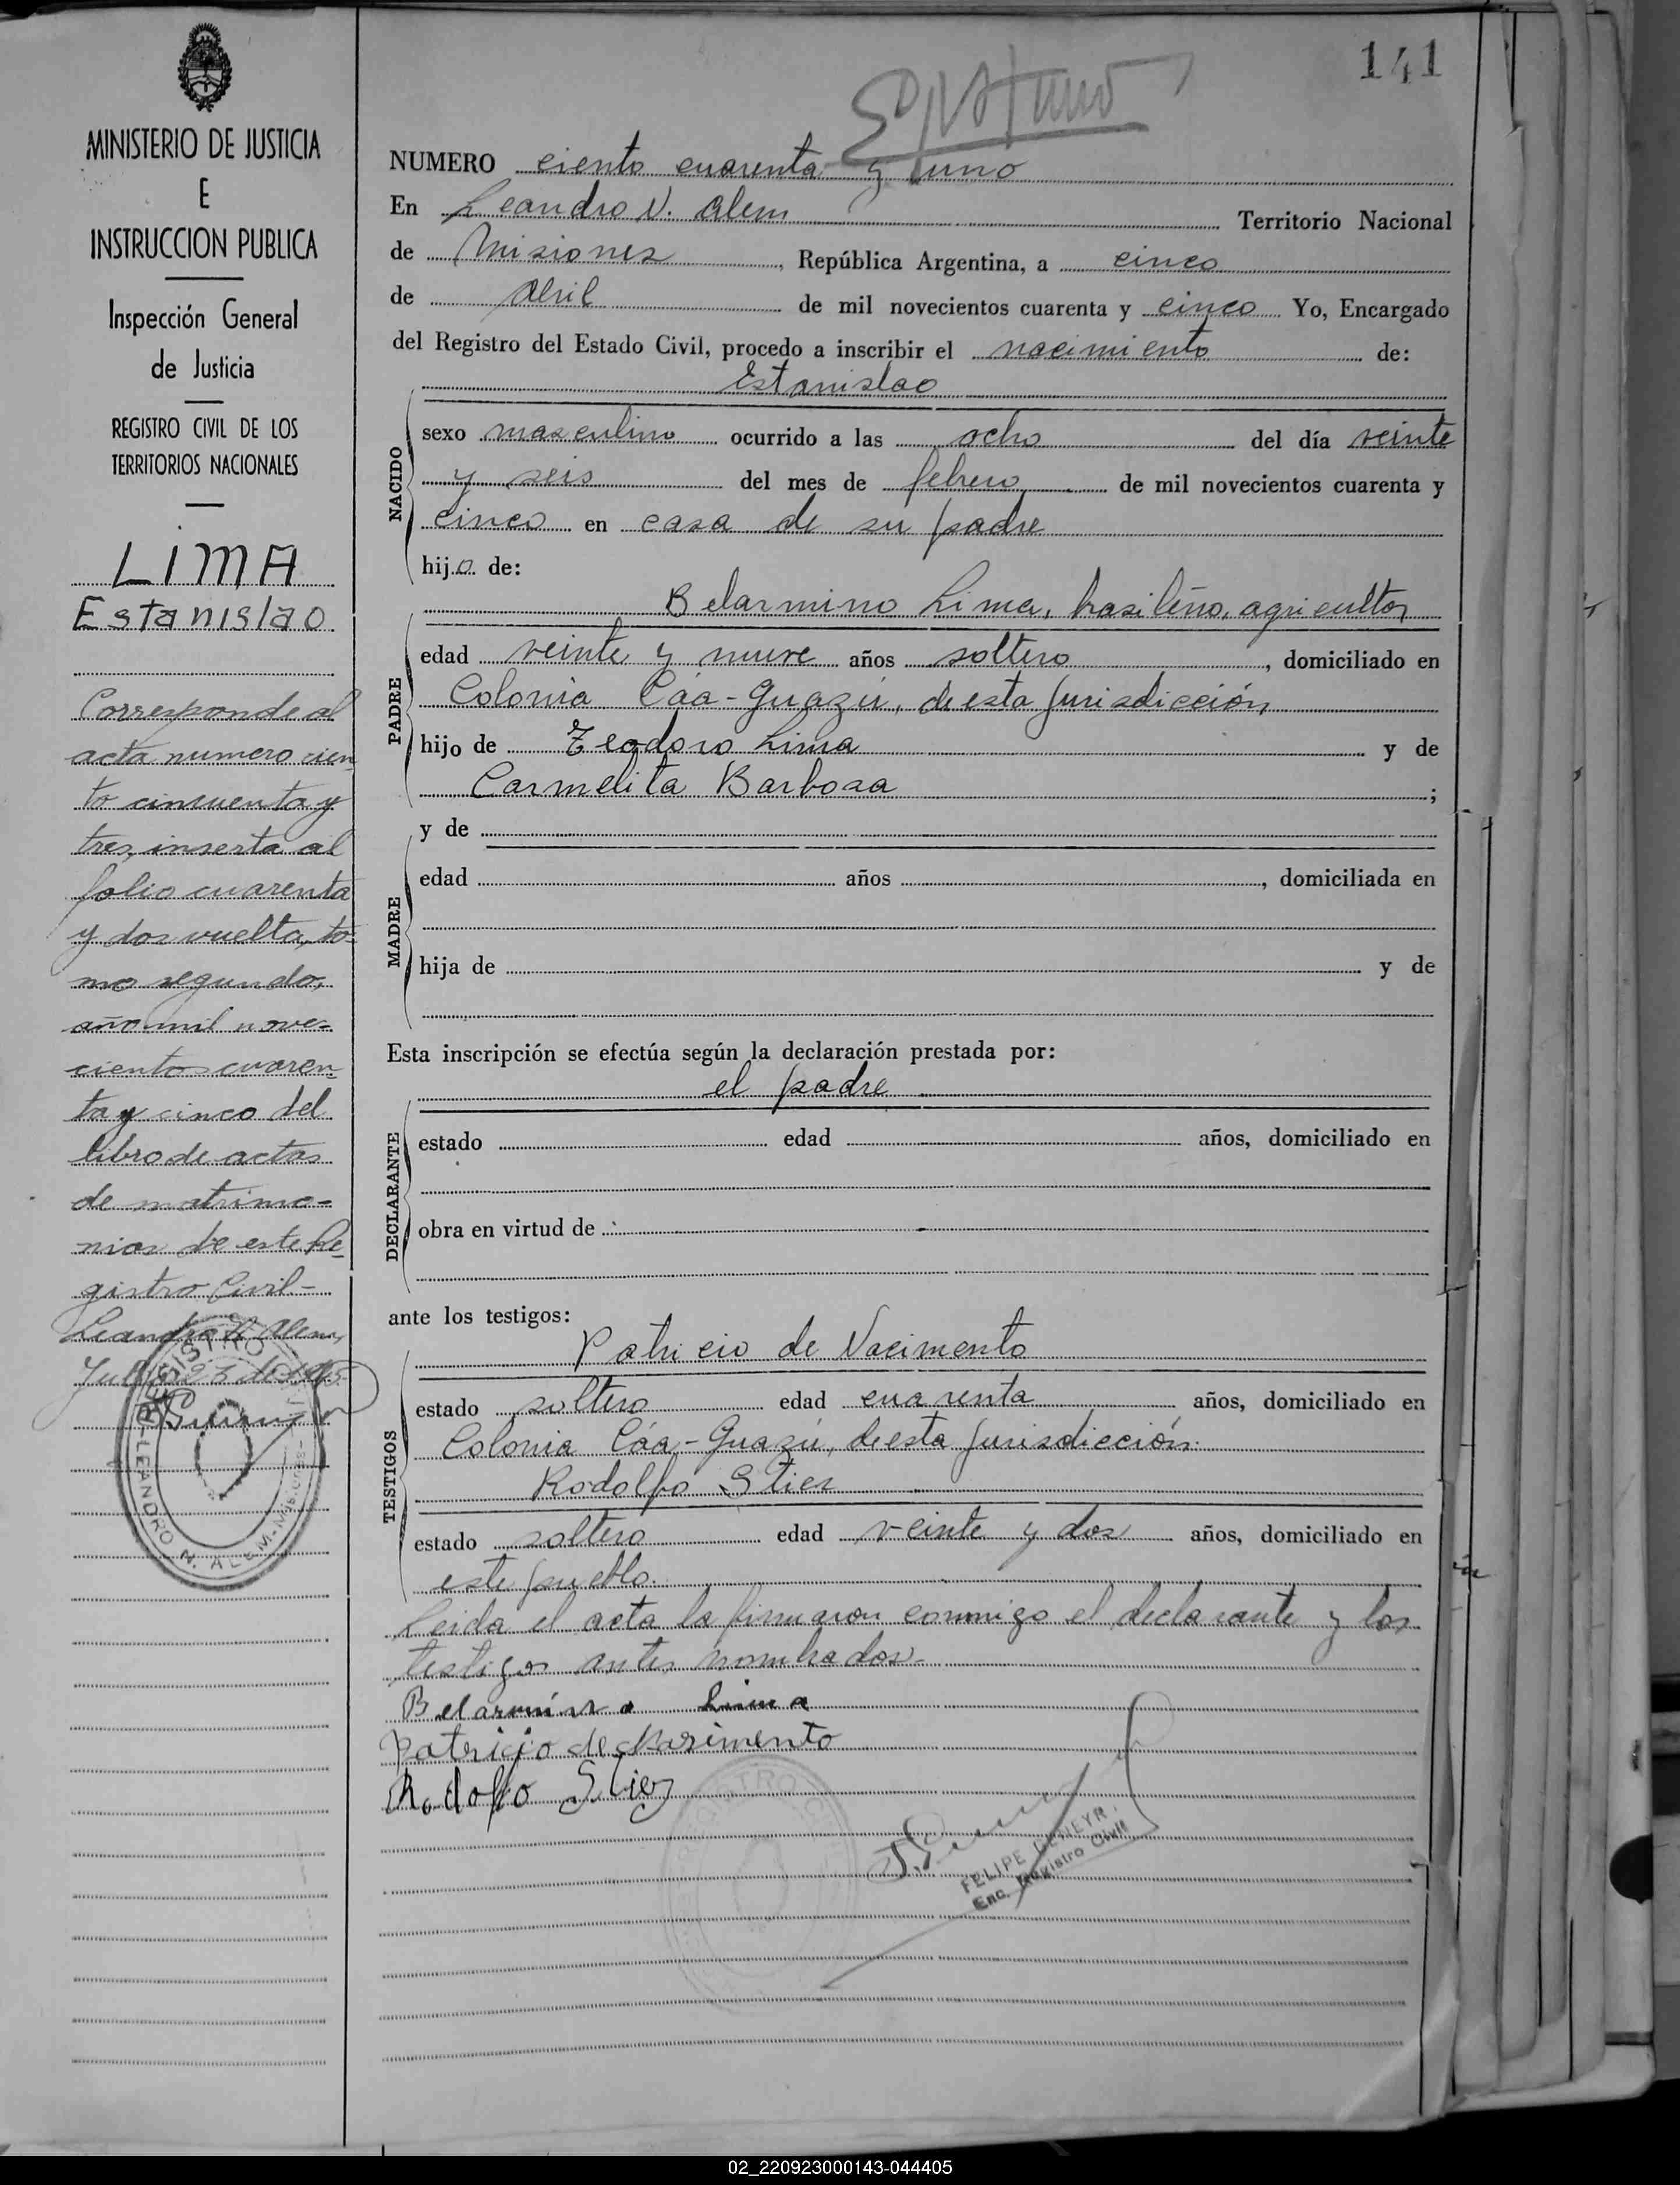 MINISTERIO DE JUSTICIA
E
INSTRUCCION PUBLICA
Inspección General
de Justicia
REGISTRO CIVIL DE LOS
TERRITORIOS NACIONALES
LIMA
Estanislao
Corresponde al
acta numero cien
to cincuenta y
tres, inserta al
folio cuarenta
y dos vuelta, to-
mo segundo,
año mil nove-
cientos cuaren
ta y cinco del
libro de actas
de matrimo-
nios de este Re
gistro Civil-
Leandro N. Alem,
REGISTRO
LEANDRO N. ALEM - Misiones
141
NUMERO ciento cuarenta y uno
En Leandro N. Alem Territorio Nacional
de Misiones, República Argentina, a cinco
de Abril de mil novecientos cuarenta y cinco Yo, Encargado
del Registro del Estado Civil, procedo a inscribir el nacimiento de:
Estanislao
NACIDO
sexo masculino ocurrido a las ocho del día veinte
y seis del mes de febrero de mil novecientos cuarenta y
cinco en casa de su padre
hijo de:
PADRE
Belarmino Lima, brasileño, agricultor
edad veinte y nueve años soltero, domiciliado en
Colonia Cáa-Guazú, de esta Jurisdicción
hijo de Teodoro Lima y de
Carmelita Barboza;
MADRE
y de
edad años, domiciliada en
hija de y de
Esta inscripción se efectúa según la declaración prestada por:
el padre
DECLARANTE
estado edad años, domiciliado en
obra en virtud de
ante los testigos:
TESTIGOS
Patricio de Nacimento
estado soltero edad cuarenta años, domiciliado en
Colonia Cáa-Guazú, de esta Jurisdicción.
Rodolfo Stier
estado soltero edad veinte y dos años, domiciliado en
este pueblo.
Leida el acta la firmaron conmigo el declarante y los
testigos antes nombrados-
Belarmino Lima
Patricio de Nacimento
Rodolfo Stier
REGISTRO
FELIPE
Enc. Registro Civil
02_220923000143-044405